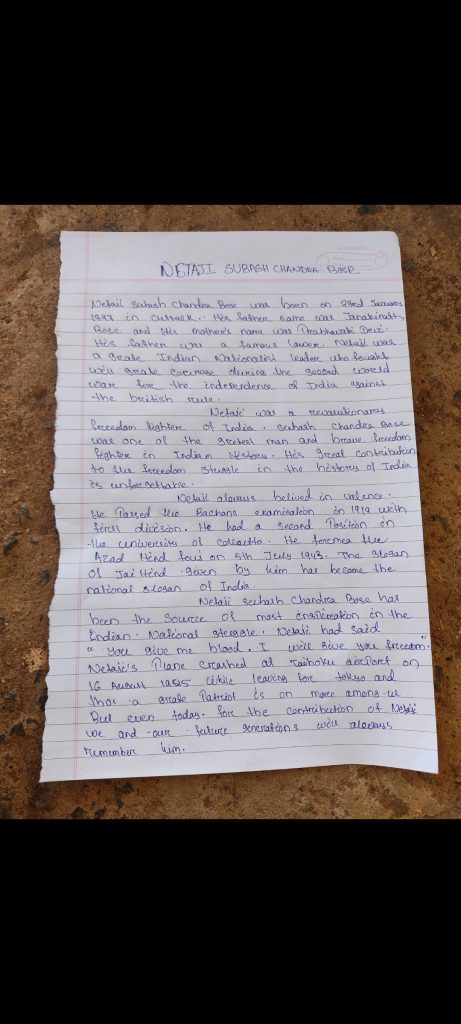 NETAJI SUBASH CHANDRA BOSE
Netaji Subash Chandra Bose was born on 23rd January
1897 in cuttack. His father name was Janakinath
Bose and His mother's name was Prabhavati Devi.
His father was a famous lawer. Netaji was
a grate Indian Nationalist leader who fought
with grate courage during the second world
war for the independence of India against
the british rule.
Netaji was a revolutionary
freedom fighter of India. Subash chandra Bose
was one of the greatest man and brave freedom
fighter in Indian History. His great contribution
to the freedom struggle in the history of India
is unforgettable.
Netaji always belived in valence.
He Passed the Bachors examination in 1919 with
first division. He had a second Position in
the university of calcutta. He formed the
Azad Hind fouj on 5th July 1943. The slogan
of Jai Hind given by him has become the
national slogan of India.
Netaji Subash Chandra Bose has
been the Source of most inspiration in the
Indian National struggle. Netaji had said
"You give me blood. I will give you freedom."
Netaji's Plane crashed at Taihoku airport on
16 August 1945 while leaving for tokyo and
thos a grate Patriot is on more among us.
But even today. for the contribution of Netaji
we and our future generations will always
remember him.